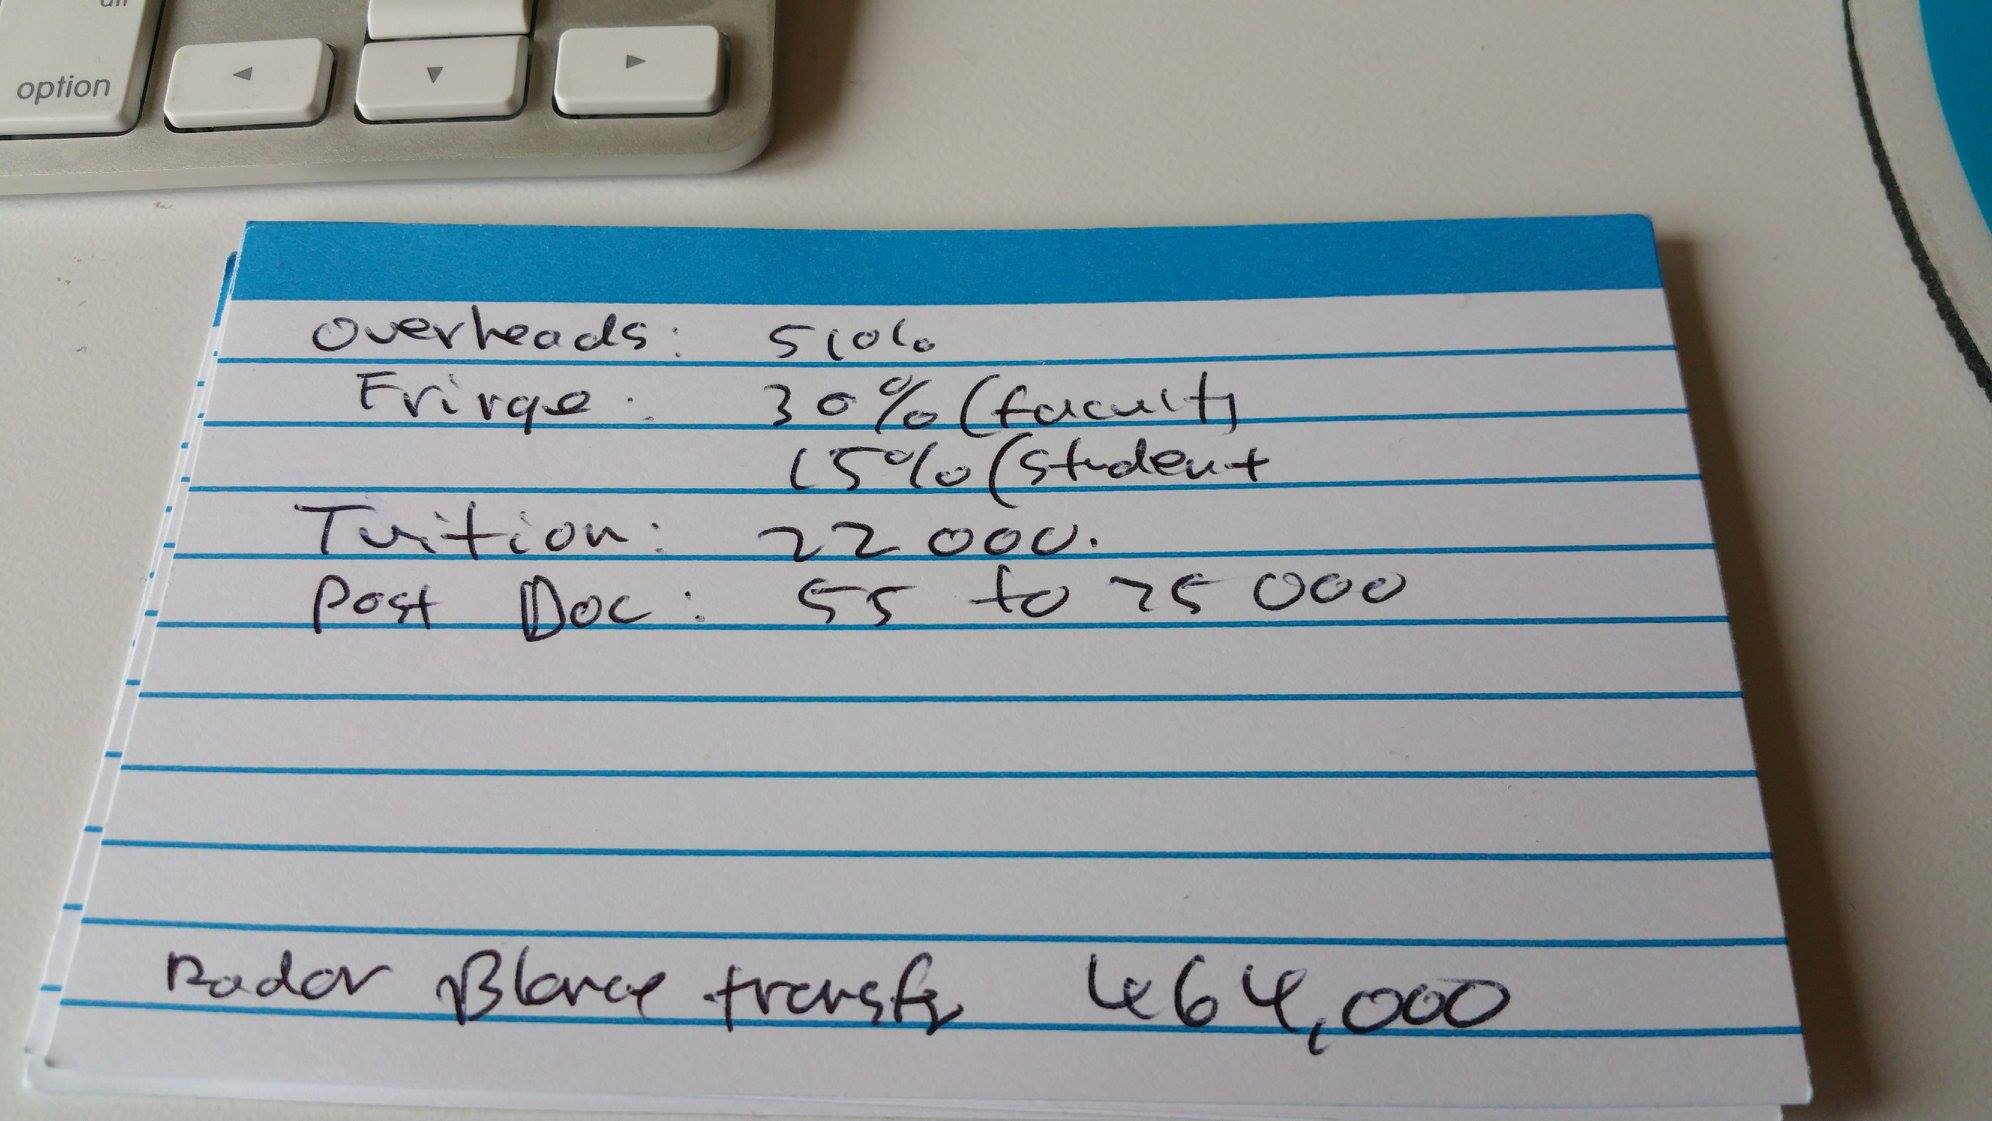 option
Overheads: 51%
Fringe: 30% (faculty
15% (student
Tuition: 22 000.
Post Doc: 55 to 75 000
Radar Blance transfr 464,000